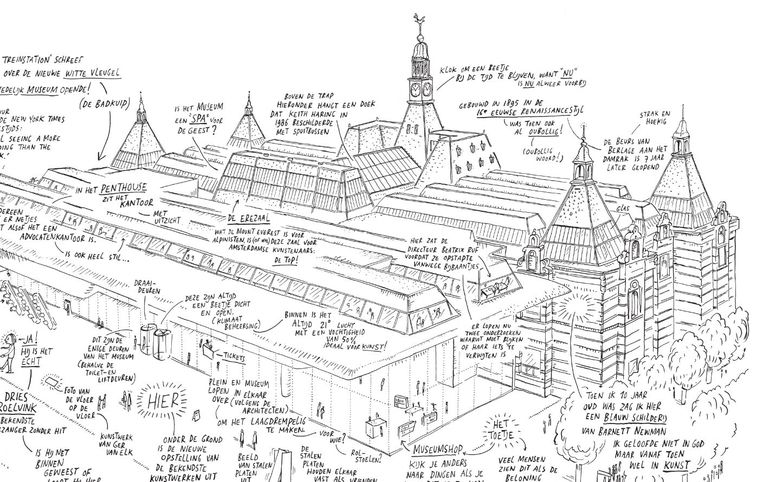 TREINSTATION' SCHREEF
OVER DE NIEUWE WITTE VLEUGEL
MUSEUM OPENDE!
(DE BADKUIP)
DE NEW YORK TIMES
SEEING A MORE
THAN THE
IS HET MUSEUM
EEN "SPA" VOOR
DE GEEST?
BOVEN DE TRAP
HIERONDER HANGT EEN DOEK
DAT KEITH HARING IN
1986 BESCHILDERDE
MET SPUITBUSSEN
KLOK OM EEN BEETJE
BIJ DE TIJD TE BLIJVEN, WANT "NU"
IS NU ALWEER VOORBIJ
GEBOUWD IN 1895 IN DE
16e EEUWSE RENAISSANCESTIJL
WAS TOEN OOK
AL OUBOLLIG!
(OUBOLLIG
WOORD!)
STRAK EN
HOEKIG
DE BEURS VAN
BERLAGE AAN HET
DAMRAK IS 7 JAAR
LATER GEOPEND
GLAS
IN HET PENTHOUSE
ZIT HET
KANTOOR
MET
UITZICHT
ER NETJES
ALSOF HET EEN
ADVOCATENKANTOOR IS.
IS OOK HEEL STIL...
DE EREZAAL
WAT DE MOUNT EVEREST IS VOOR
ALPINISTEN, IS (OF WAS) DEZE ZAAL VOOR
AMSTERDAMSE KUNSTENAARS:
DE TOP!
HIER ZAT DE
DIRECTEUR BEATRIX RUF
VOORDAT ZE OPSTAPTE
VANWEGE BIJBAANTJES
DRAAI-
DEUREN
DEZE ZIJN ALTIJD
EEN BEETJE DICHT
EN OPEN.
(KLIMAAT
BEHEERSING)
BINNEN IS HET
ALTIJD 21° LUCHT
MET EEN VOCHTIGHEID
VAN 50%
IDEAAL VOOR KUNST!
ER LOPEN NU
TWEE ONDERZOEKEN
WAARUIT MOET BLIJKEN
OF HAAR IETS TE
VERWIJTEN IS
JA!
HIJ IS HET
ECHT
DRIES
ROELVINK
BEKENDSTE
ZANGER ZONDER HIT
IS HIJ NET
BINNEN
GEWEEST OF
DIT ZIJN DE
ENIGE DEUREN
VAN HET MUSEUM
(BEHALVE DE
TOILET- EN
LIFTDEUREN)
TICKETS
FOTO VAN
DE VLOER
OP DE
VLOER
KUNSTWERK
VAN GER
VAN ELK
HIER
ONDER DE GROND
IS DE NIEUWE
OPSTELLING VAN
DE BEKENDSTE
KUNSTWERKEN UIT
PLEIN EN MUSEUM
LOPEN IN ELKAAR
OVER (VOLGENS DE
ARCHITECTEN)
OM HET LAAGDREMPELIG
TE MAKEN
VOOR
WIE?
ROL-
STOELEN!
BEELD
VAN STALEN
PLATEN
UIT
DE
STALEN
PLATEN
HOUDEN ELKAAR
VAST ALS VRIENDEN
MUSEUMSHOP
KIJK JE ANDERS
NAAR DINGEN ALS JE
HET
TOETJE
VEEL MENSEN
ZIEN DIT ALS DE
BELONING
TOEN IK 10 JAAR
OUD WAS ZAG IK HIER
EEN BLAUW SCHILDERIJ
VAN BARNETT NEWMAN
IK GELOOFDE NIET IN GOD
MAAR VANAF TOEN
WEL IN KUNST